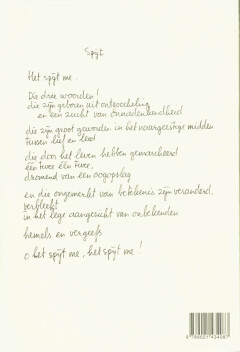 Spijt
Het spijt me.
Die drie woorden!
die zijn geboren uit ontgoocheling
en een zucht van onredendheid
die zijn groot geworden in het naargeestige midden
tussen lief en leed
die door het leven hebben gemarcheerd
één twee één twee,
dromend van een oogopslag
en die ongemerkt van betekenis zijn veranderd,
verbleekt
in het lege aangezicht van onbekenden
hemels en vergeefs
o het spijt me, het spijt me!